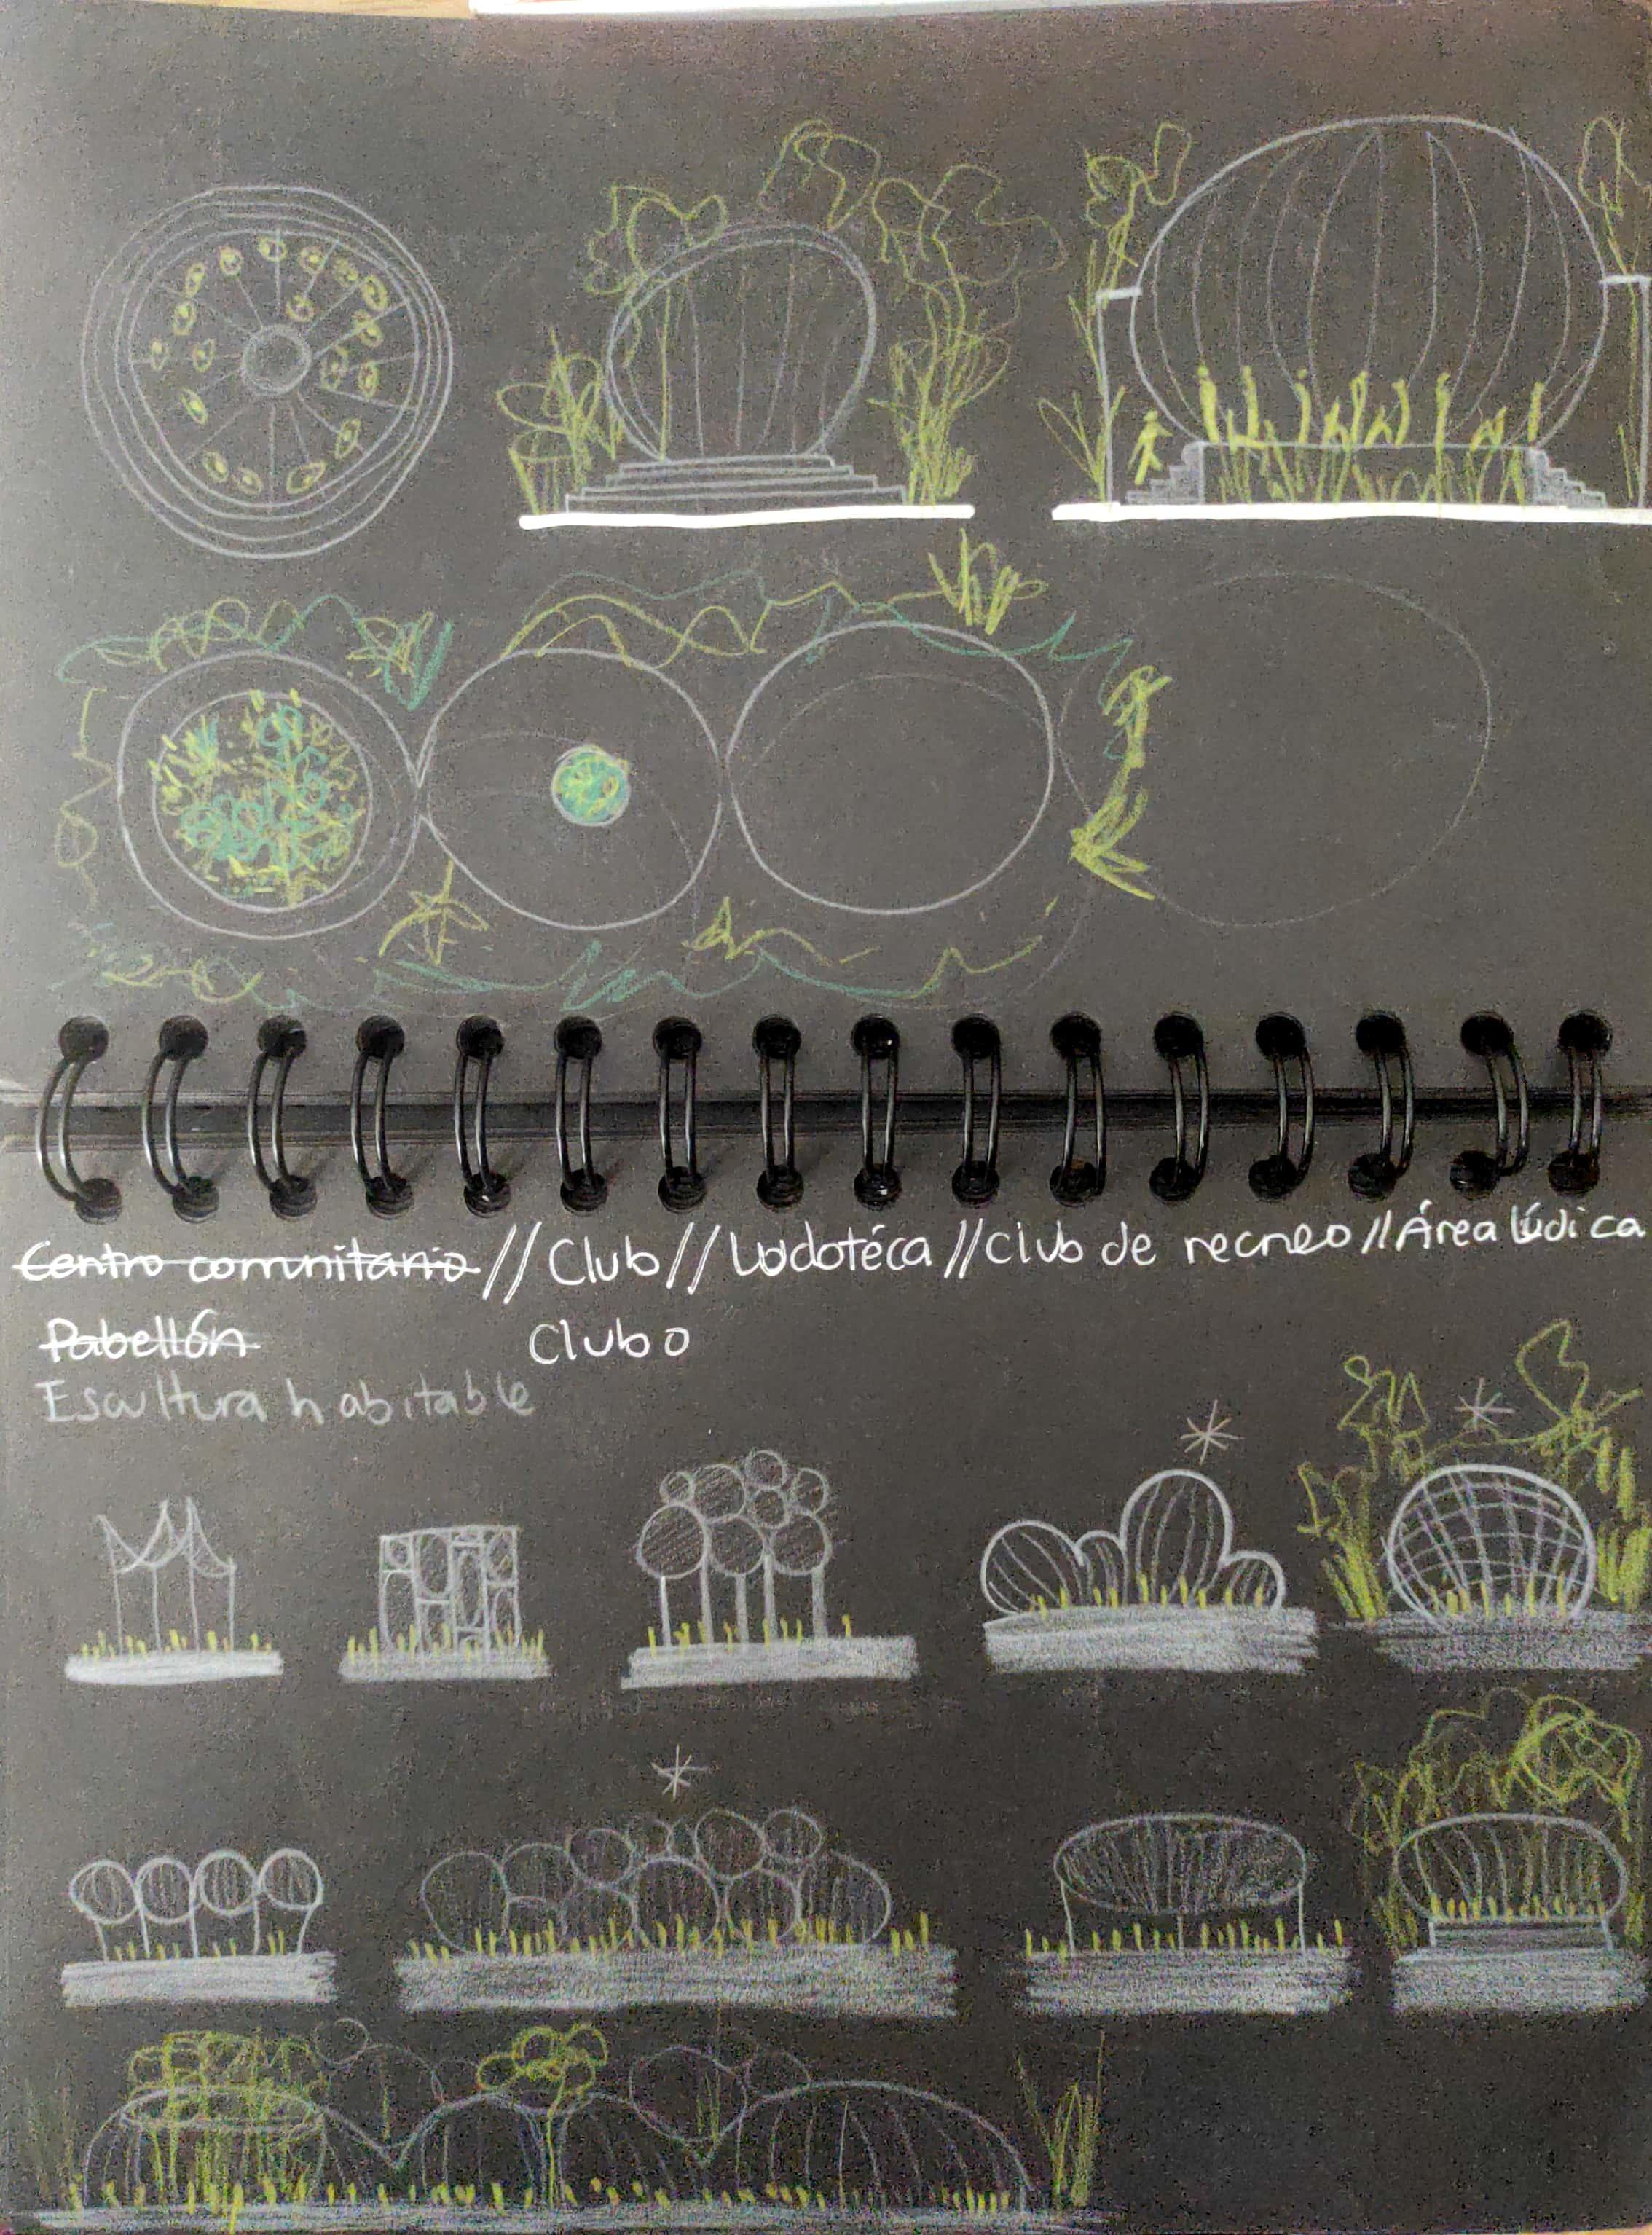 Centro comunitario // Club // Ludotéca // Club de recreo // Área lúdica
Pabellón Clubo
Escultura habitable